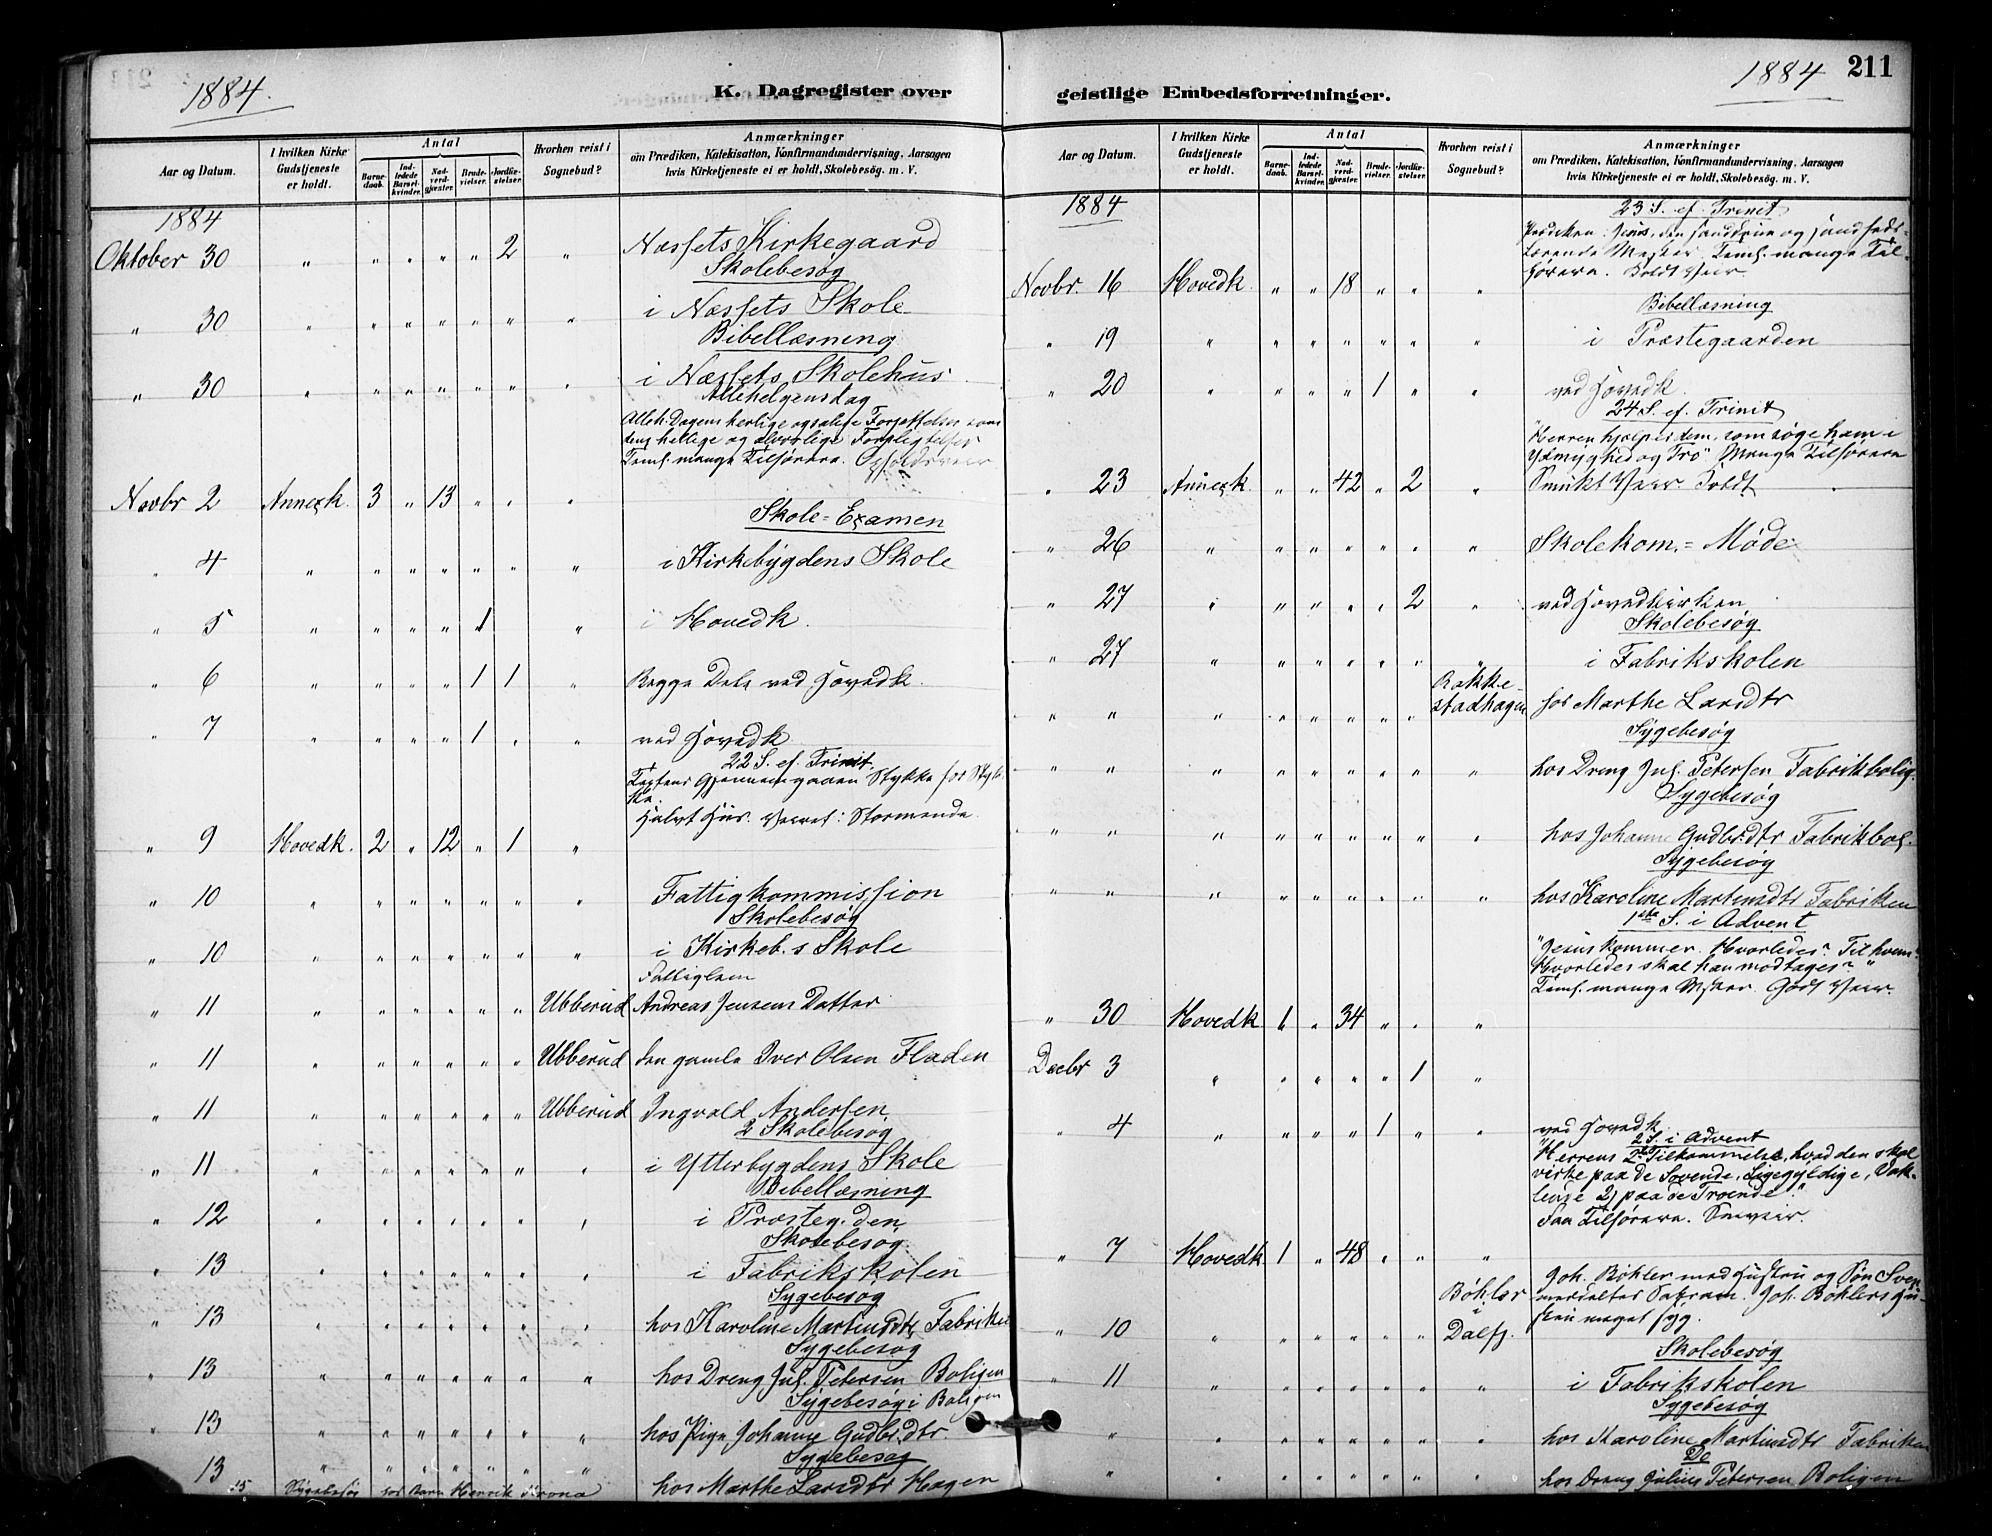 1884.
K. Dagregister over
Antal
Anmærkninger
Aar og Datum.
I hvilken Kirke Gudstjeneste er holdt.
Barnedaab.
Indledede Barselkvinder.
Nadverdgjæster.
Brudevielser.
Jordfæstelser.
Hvorhen reist i Sognebud?
om Prædiken, Katekisation, Konfirmandundervisning, Aarsagen
hvis Kirketjeneste ei er holdt, Skolebesøg. m. V.
1884
Oktober 30 " " " " " 2 " Næssets Kirkegaard
Skolebesøg
" 30 " " " " " " " i Næssets Skole
Bibellæsning
" 30 " " " " " " " i Næssets Skolehus
Allehelgensdag
Alleh. Dagens herlige og salige Forjættelser som
dens hellige og alvorlige Forpligtelser
Temf. mange Tilhørere. Opholdsveir
Novbr 2 Annexk. 3 " 13 " " "
Skole=Examen
" 4 " " " " " " " i Kirkebygdens Skole
" 5 " " " " 1 " i Hovedk.
" 6 " " " " 1 1 " Begge Dele ved Hovedk.
" 7 " " " " 1 " " ved Hovedk
22 S. ef. Trinit.
Textens Gjennemgaaen Stykke for Styk-
ke.
Halvt Hus. Veiret: Stormende.
" 9 Hovedk. 2 " 12 " 1 "
" 10 " " " " " " " Fattigkommission
Skolebesøg
" 10 " " " " " " " i Kirkeb.s Skole
" 11 " " " " " " Ubberud Andreas Jensens Datter
" 11 " " " " " " Ubberud den gamle Iver Olsen Fladen
" 11 " " " " " " Ubberud Ingvald Andersen
2 Skolebesøg
" 11 " " " " " " " i Ytterbygdens Skole
Bibellæsning
" 12 " " " " " " " i Præsteg.den
Skolebesøg
" 13 " " " " " " " i Fabrikskolen
Sygebesøg
" 13 " " " " " " " hos Karoline Martinsdtr Fabriken
Sygebesøg
" 13 " " " " " " " hos Dreng Jul. Petersen Boligen
Sygebesøg i Boligen
" 13 " " " " " " " hos Pige Johanne Gudbr.dtr.
Sygebesøg
13 " " " " " " " hos Marthe Larsdtr Hagen
15 Sygebesøg hos Barn Henrik Krona
1884 211
geistlige Embedsforretninger.
Antal
Anmærkninger
Aar og Datum.
I hvilken Kirke Gudstjeneste er holdt.
Barnedaab.
Indledede Barselkvinder.
Nadverdgjæster.
Brudevielser.
Jordfæstelser.
Hvorhen reist i Sognebud?
om Prædiken, Katekisation, Konfirmandundervisning, Aarsagen
hvis Kirketjeneste ei er holdt, Skolebesøg. m. V.
1884
23 S. ef. Trinit
Prædiken: Jesus, den sanddrue og sandheds-
lærende Mester. Temf. mange Til-
hørere. Koldt Veir.
Novbr. 16 Hovedk. " " 18 " " "
Bibellæsning
" 19 " " " " " " " i Præstegaarden
" 20 " " " " 1 " " ved Hovedk.
24 S. ef. Trinit
"Herren hjælper dem, som søge ham i
Ydmyghed og Tro" Mange Tilhørere
" 23 Annexk. " " 42 " 2 " Smukt Veir. Koldt
" 26 " " " " " " " Skolekom.= Møde
" 27 " " " " " 2 " ved Hovedkirken
Skolebesøg
" 27 " " " " " " " i Fabrikskolen
" " " " " " " " Rakke-
stadhagen hos Marthe Larsdtr
Sygebesøg
" " " " " " " " " hos Dreng Jul. Petersen Fabrikbolig.
Sygebesøg
" " " " " " " " " hos Johanne Gudbr.dtr Fabrikbol.
Sygebesøg
" " " " " " " " " hos Karoline Martinsdtr Fabriken
1ste S. i Advent
"Jesus kommer. Hvorledes? Til hvem?
Hvorledes skal han modtages?"
Temf. mange Msker. Godt Veir.
" 30 Hovedk 1 " 34 " " "
Decbr 3 " " " " " 1 "
" 4 " " " " 1 " " ved Hovedk
2 S. i Advent
"Herrens Tilkommelse, hvad den skal
virke paa de Sovende, Ligegyldige, Vak-
lende 2) paa de Troende."
Faa Tilhørere. Sneveir.
" 7 Hovedk 1 " 48 " " "
Joh. Bøhler med Hustru og Søn Sven
Joh. Bøhlers Hu-
stru meget syg.
" 10 " " " " " " Bøhler
i
Dalfj.
Skolebesøg
" 11 " " " " " " " i Fabrikskolen
Sygebesøg
" " " " " " " " hos Karoline Martinsdtr Fabriken
Do
" " " " " " " " hos Dreng Julius Petersen Boligen